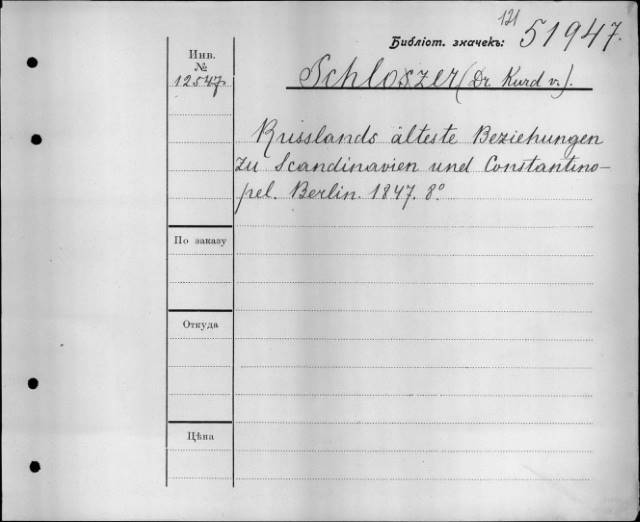 121
Библіот. значекъ: 51947.
Инв.
№
12547
Schloszer (Dr. Kurd v.).
Russlands älteste Beziehungen
zu Scandinavien und Constantino-
pel. Berlin. 1847. 8º
По заказу
Откуда
Цѣна